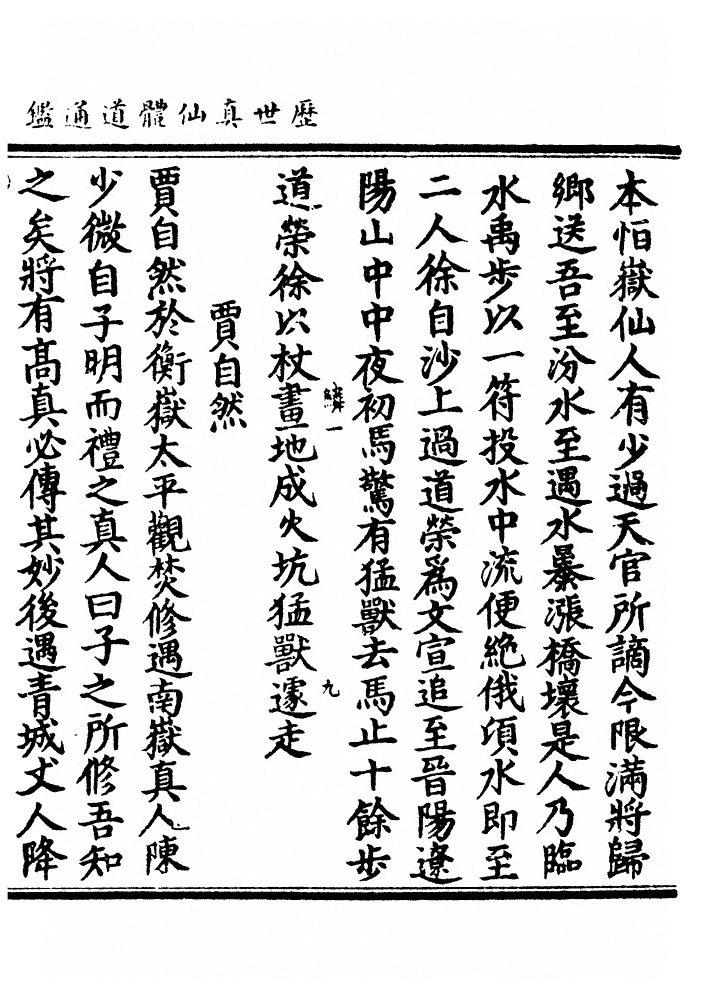 歷世真仙體道通鑑
本怕嶽仙人有少過天官所謫今限滿將歸
鄉送吾至汾水至遇水暴漲橋壞是人乃臨
水禹步以一符投水中流便絶俄頃水即至
二人徐自沙上過道榮爲文宣追至晉陽遼
陽山中中夜初馬驚有猛獸去馬止十餘步
道榮徐以杖畫地成火坑猛獸遽走
鱗一
九
賈自然
賈自然於衡嶽太平觀焚修遇南嶽真人陳
少微自子明而禮之真人曰子之所修吾知
之矣將有髙真必傳其妙後遇青城丈人降